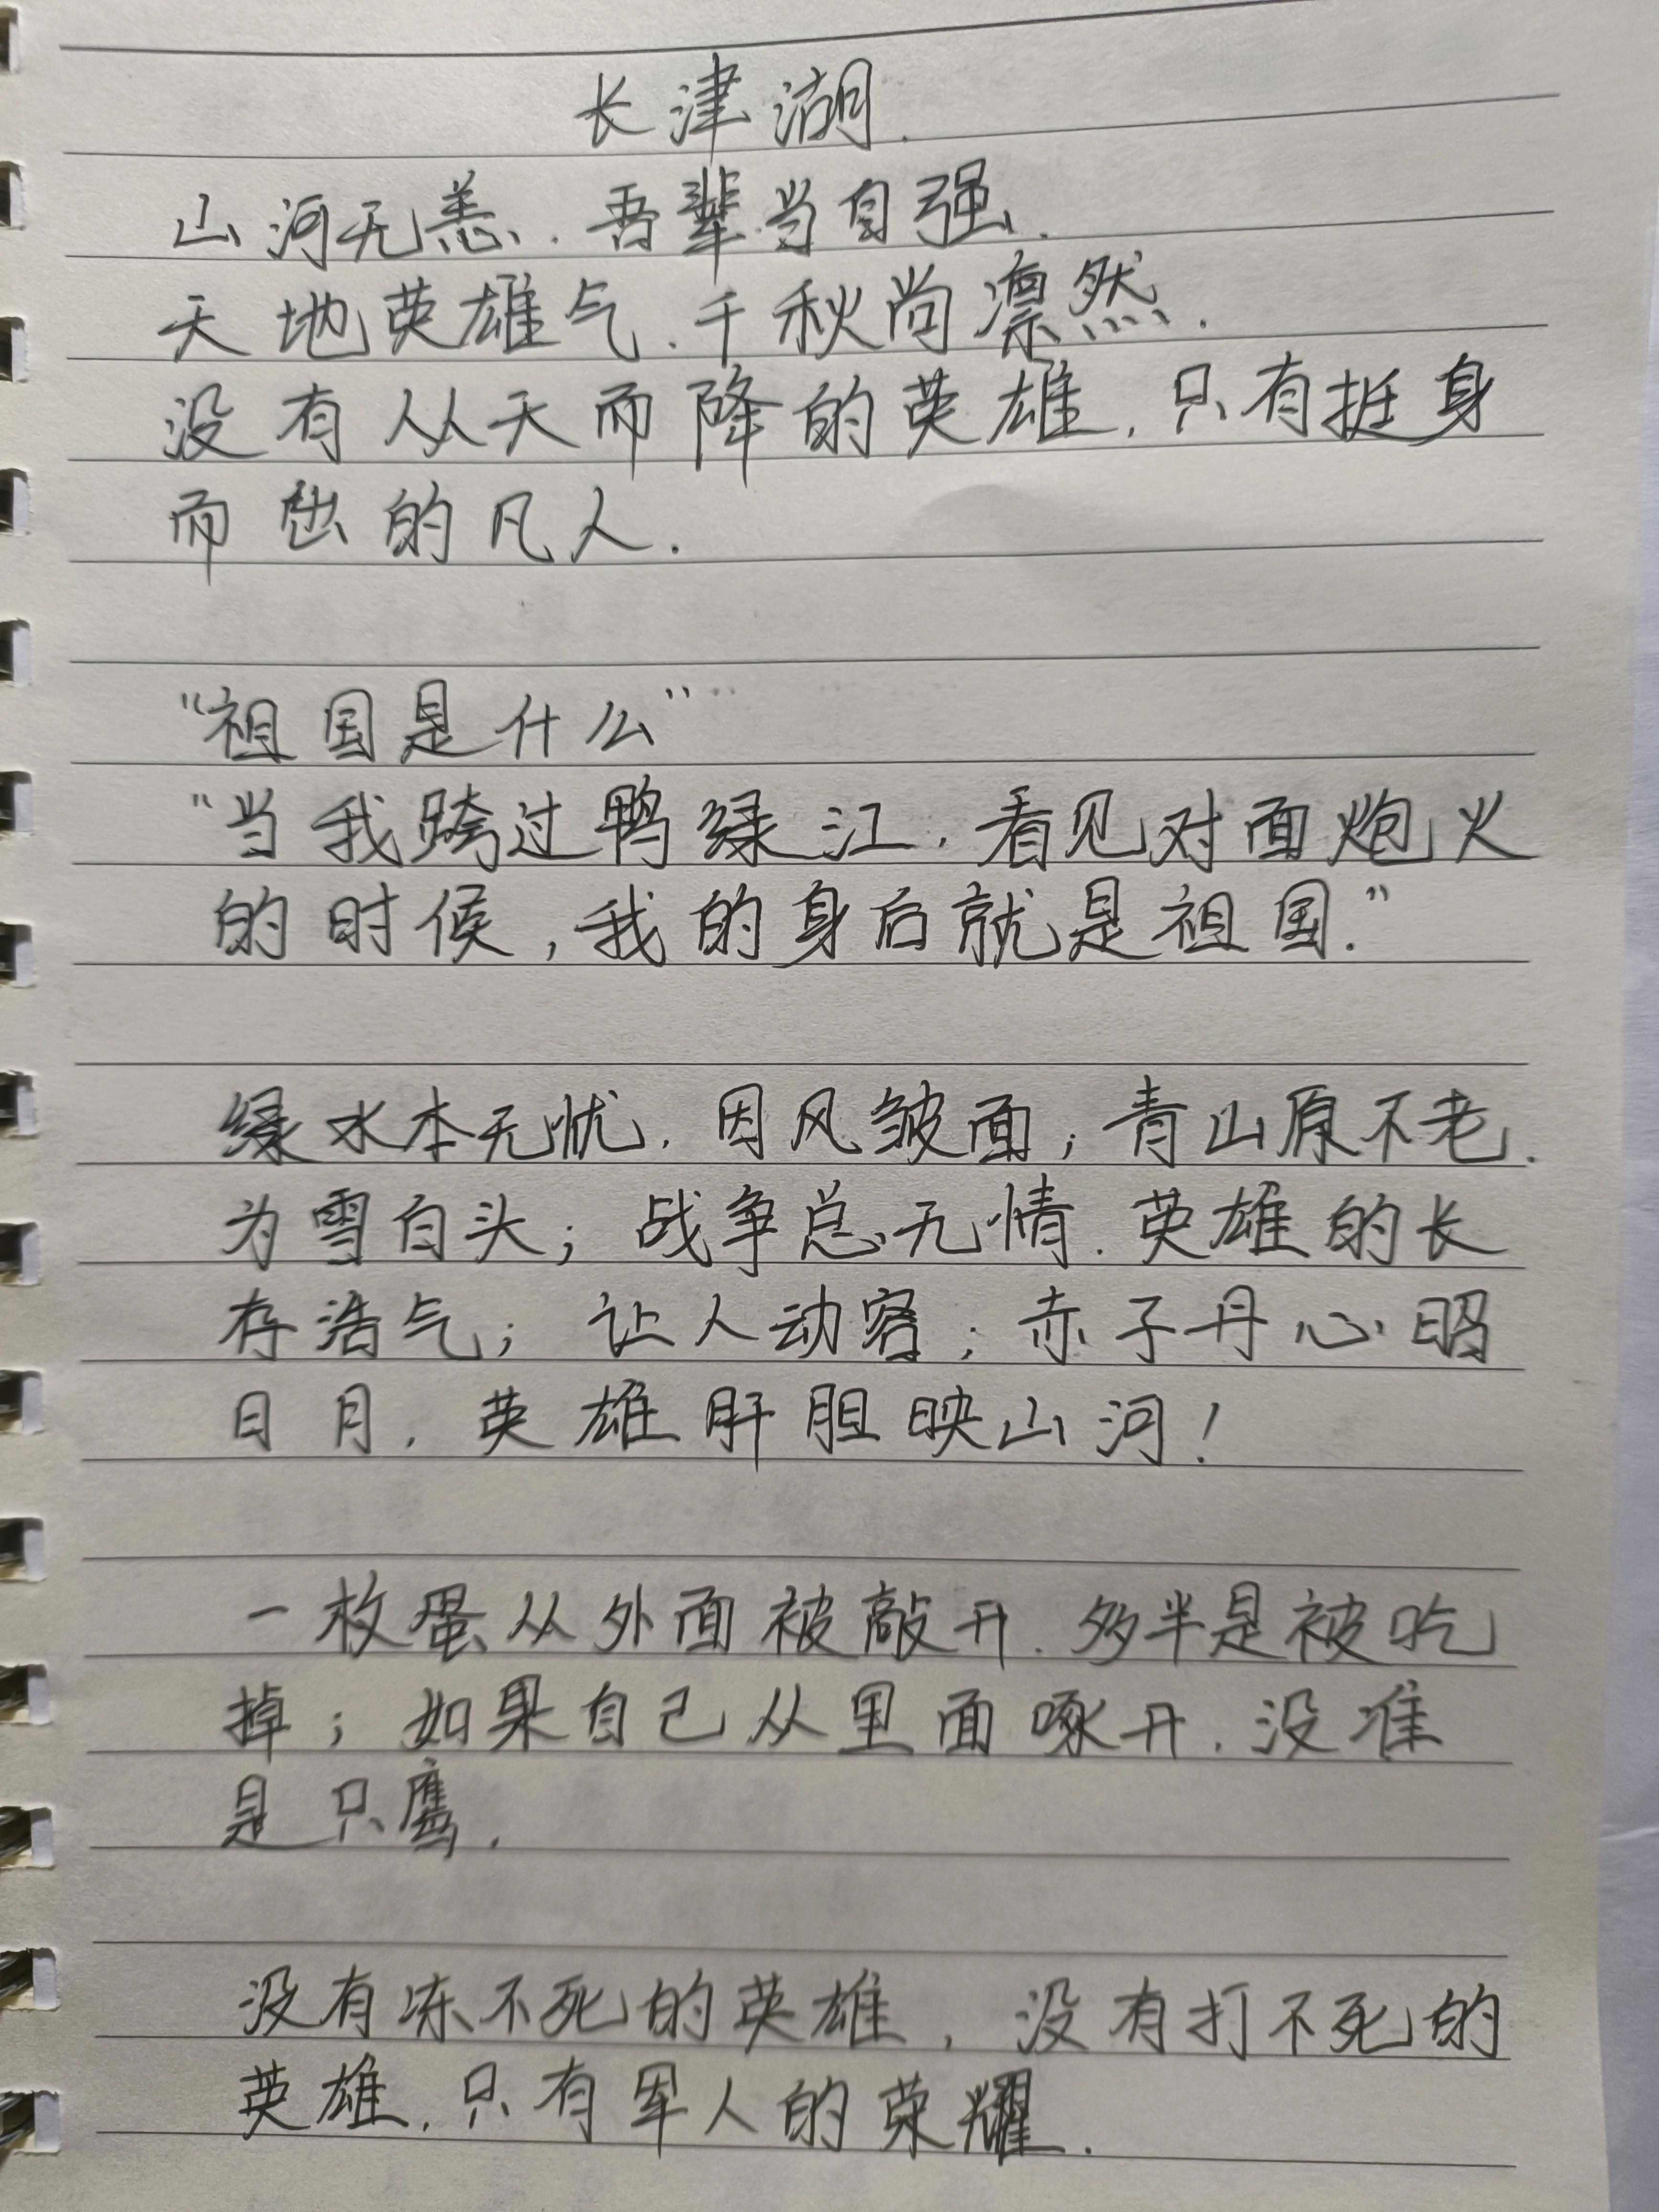 长津湖.
山河无恙.吾辈当自强.
天地英雄气.千秋尚凛然.
没有从天而降的英雄,只有挺身
而出的凡人.
“祖国是什么”
“当我跨过鸭绿江,看见对面炮火
的时候,我的身后就是祖国.”
绿水本无忧,因风皱面;青山原不老.
为雪白头;战争总无情.英雄的长
存浩气;让人动容;赤子丹心昭
日月,英雄肝胆映山河!
一枚蛋从外面被敲开.多半是被吃
掉;如果自己从里面啄开.没准
是只鹰.
没有冻不死的英雄,没有打不死的
英雄,只有军人的荣耀.